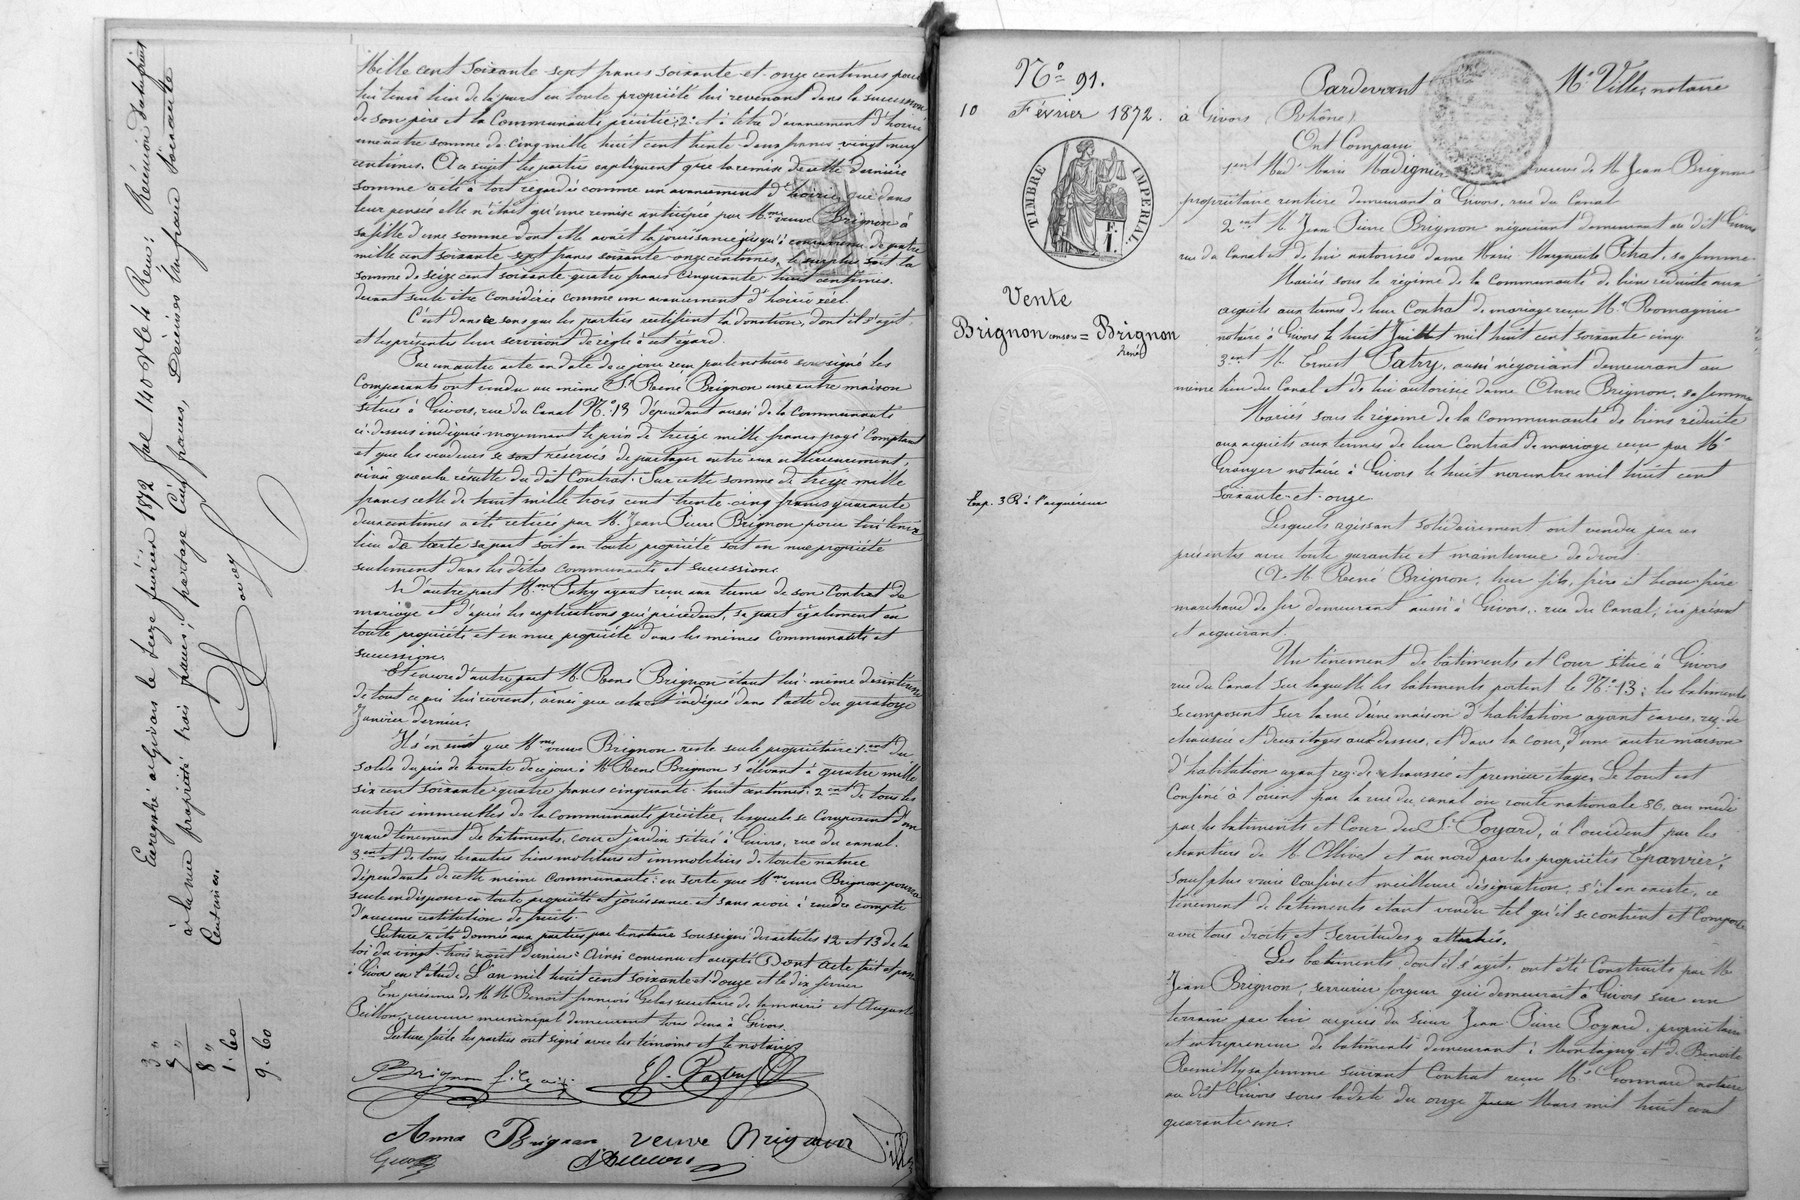 Mille cent soixante-sept francs soixante-et-onze centimes pour
lui tenir lieu de la part en toute propriété lui revenant dans la succession
de son père et la Communauté précitée; 2° et à titre d'avancement d'hoirie
une autre somme de cinq mille huit cent trente-deux francs vingt neuf
centimes. A ce sujet les parties expliquent que la remise de cette dernière
somme a été à tort regardée comme un avancement d'hoirie, que dans
leur pensée elle n'était qu'une remise anticipée par Mme veuve Brignon à
sa fille d'une somme dont elle avait la jouissance jusqu'à concurrence de quatre
mille cent soixante-sept francs soixante-onze centimes, le surplus soit la
somme de seize cent soixante-quatre francs cinquante-huit centimes
devant seule être considérée comme un avancement d'hoirie réel.
C'est dans ce sens que les parties rectifient la donation, dont il s'agit,
et les présentes leur serviront de règle à cet égard.
Par un autre acte en date de ce jour reçu par le notaire soussigné les
Comparants ont vendu au même Sr René Brignon une autre maison
située à Givors, rue du Canal N° 13 dépendant aussi de la Communauté
ci-dessus indiquée moyennant le prix de treize mille francs payé Comptant
et que les vendeurs se sont réservés de partager entre eux ultérieurement,
ainsi que cela résulte du dit Contrat. Sur cette somme de treize mille
francs celle de huit mille trois cent trente-cinq francs quarante
deux centimes a été retirée par M. Jean Pierre Brignon pour lui tenir
lieu de toute sa part soit en toute propriété soit en nue propriété
seulement dans les dites Communauté et succession.
D'autre part Mme Patry ayant reçu aux termes de son Contrat de
mariage et d'après les explications qui précèdent, sa part également en
toute propriété et en nue propriété dans les mêmes Communauté et
succession.
Et encore d'autre part M. René Brignon étant lui-même désintéressé
de tout ce qui lui revient, ainsi que cela est indiqué dans l'acte du quatorze
Janvier dernier.
Il s'en suit que Mme veuve Brignon reste seule propriétaire 1ent du
solde du prix de la vente de ce jour à M. René Brignon s'élevant à quatre mille
six cent soixante-quatre francs cinquante-huit centimes; 2ent de tous les
autres immeubles de la Communauté précitée, lesquels se Composent d'un
grand tènement de bâtiments, cour et jardin situé à Givors, rue du canal.
3ent et de tous les autres biens mobiliers et immobiliers de toute nature
dépendants de cette même Communauté: en sorte que Mme veuve Brignon pourra
seule en disposer en toute propriété et jouissance et sans avoir à rendre compte
d'aucune restitution de fruits.
Lecture a été donnée aux parties par le notaire soussigné des articles 12 et 13 de la
loi du vingt-trois août dernier. Ainsi convenu et accepté Dont acte fait et passé
à Givors en l'étude L'an mil huit cent soixante et douze et le dix février
En présence de MM. Benoit François secrétaire de la mairie et Auguste
receveur municipal demeurant tous deux à Givors.
Lecture faite les parties ont signé avec les témoins et le notaire
Brignon fils E. Patry
Anna Brignon veuve Brignon Ville
Enregistré à Givors le seize février 1872 fol 140 R
Reçu: Réunion d'usufruit
à la nue propriété trois francs; partage Cinq francs, Décimes Un franc soixante
Centimes.
3 "
5 "
8 "
1. 60
9. 60
N° 91.
10 Février 1872.
TIMBRE IMPÉRIAL
1 F.
Vente
Brignon consorts = Brignon
René
Exp. 3 R à l'acquéreur
Pardevant Me Ville, notaire
à Givors (Rhône)
Ont Comparu
1ent Made Marie Madignier veuve de M. Jean Brignon
propriétaire rentière demeurant à Givors, rue du Canal
2ent M. Jean Pierre Brignon négociant demeurant au dit Givors
rue du Canal et de lui autorisée dame Marie Marguerite Petrat, sa femme
Mariés sous le régime de la Communauté de biens réduite aux
acquêts aux termes de leur Contrat de mariage reçu Me Romagnier
notaire à Givors le huit Juillet mil huit cent soixante cinq.
3ent M. Ernest Patry, aussi négociant demeurant au
même lieu du Canal et de lui autorisée dame Anne Brignon, sa femme
Mariés sous le régime de la Communauté de biens réduite
aux acquêts aux termes de leur Contrat de mariage reçu par Me
Granger notaire à Givors le huit novembre mil huit cent
soixante-et-onze
Lesquels agissant solidairement ont vendu par ces
présentes avec toute garantie et maintenue de droit.
A M. René Brignon, leur fils, frère et beau-frère
marchand de fer demeurant aussi à Givors, rue du Canal, ici présent
et acquérant.
Un tènement de bâtiments et Cour situé à Givors
rue du Canal sur laquelle les bâtiments portent le N° 13; les bâtiments
se composent sur la rue d'une maison d'habitation ayant caves, rez-de
chaussée et deux étages au-dessus, et dans la cour, d'une autre maison
d'habitation ayant rez-de-chaussée et premier étage. Le tout est
Confiné à l'orient par la rue du canal ou route nationale 86, au midi
par les bâtiments et Cour du Sr Poyard, à l'occident par les
chantiers de M. Ollivet et au nord par les propriétés Eparvier;
sauf plus vrais confins et meilleure désignation, s'il en existe, ce
tènement de bâtiments étant vendu tel qu'il se contient et Comporte
avec tous droits et servitudes y attachés.
Les bâtiments, dont il s'agit, ont été Construits par M.
Jean Brignon, serrurier forgeur qui demeurait à Givors sur un
terrain par lui acquis du sieur Jean Pierre Poyard, propriétaire
et entrepreneur de bâtiments demeurant à Montagny et de Benoite
Remilly sa femme suivant Contrat reçu Me Gonnard notaire
au dit Givors sous la date du onze Mars mil huit cent
quarante-un.